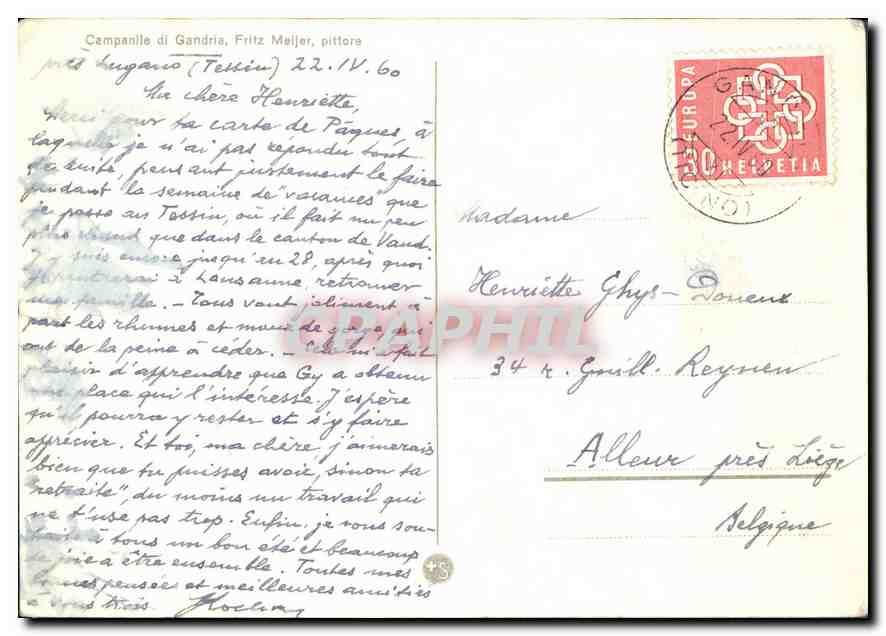 Campanile di Gandria, Fritz Meijer, pittore
près Lugano (Tessin) 22.IV.60
Ma chère Henriette,
Merci pour ta carte de Pâques à
laquelle je n'ai pas répondu tout
de suite, pensant justement le faire
pendant la semaine de "vacances" que
je passe au Tessin, où il fait un peu
plus chaud que dans le canton de Vaud.
J'y suis encore jusqu'au 28, après quoi
je rentrerai à Lausanne, retrouver
ma famille. – Tous vont joliment à
part les rhumes et maux de gorge, qui
ont de la peine à céder. – Cela m'a fait
plaisir d'apprendre que Gy a obtenu
une place qui l'intéresse. J'espère
qu'il pourra y rester et s'y faire
apprécier. Et toi, ma chère, j'aimerais
bien que tu puisses avoir, sinon ta
"retraite", du moins un travail qui
ne t'use pas trop. Enfin, je vous sou-
haite à tous un bon été et beaucoup
de joie à être ensemble. Toutes mes
bonnes pensées et meilleures amitiés
à vous trois.
EUROPA
30 HELVETIA
GANDRIA
22.IV.60
Madame
Henriette Ghys-Doneux
34 r. Guill. Reynen
Alleur près Liège
Belgique
CPAPHIL.COM
+S